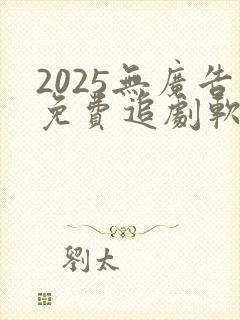 2025無廣告
免費追劇軟
劉太